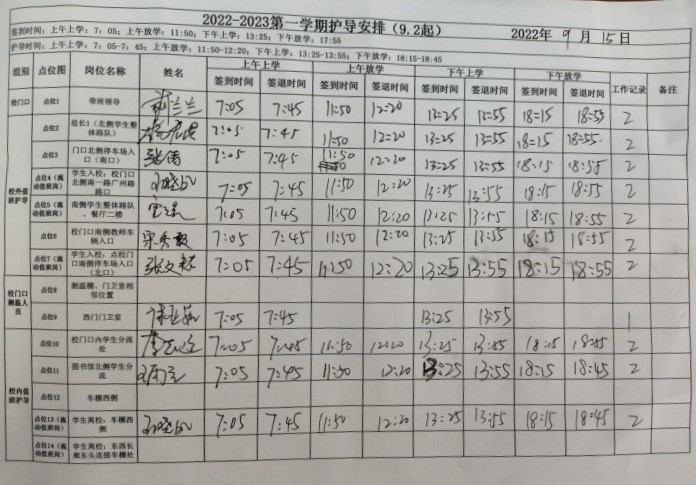 2022-2023第一学期护导安排（9.2起）
签到时间：上午上学：7：05；上午放学：11:50；下午上学：13:25；下午放学：17:55
2022年 9 月 15日
护导时间：上午上学：7:05-7：45；上午放学：11:50-12:20；下午上学：13:25-13:55；下午放学：18:15-18:45
组别 点位图 岗位名称 姓名 上午上学 上午放学 下午上学 下午放学 工作记录 备注
签到时间 签退时间 签到时间 签退时间 签到时间 签退时间 签到时间 签退时间
校门口 点位1 带班领导 兰兰 7:05 7:45 11:50 12:20 13:25 13:55 18:15 18:55 2
点位2 组长1（北侧学生整体路队） 7:05 7:45 11:50 12:20 13:25 13:55 18:15 18:55 2
点位3 门口北侧停车场入口（南口） 张倩 7:05 7:45 11:50 12:20 13:25 13:55 18:15 18:55 2
校外值班护导
点位4（流动值班岗） 学生入校：校门口北侧南一路广州路路口 7:05 7:45 11:50 12:20 13:25 13:55 18:15 18:55 2
点位5（流动值班岗） 南侧学生整体路队、餐厅二楼 7:05 7:45 11:50 12:20 13:25 13:55 18:15 18:55 2
点位6 校门口南侧教师车辆入口 7:05 7:45 11:50 12:20 13:25 13:55 18:15 18:55 2
点位7（流动值班岗） 学生入校：点校门口南侧停车场入口（北口） 张文 7:05 7:45 11:50 12:20 13:25 13:55 18:15 18:55 2
校门口测温人员 点位8 测温棚、门卫室相邻位置
点位9 西门门卫室 7:05 7:45 13:25 13:55 1
校内值班护导
点位10 校门口内学生分流处 7:05 7:45 11:50 12:20 13:25 13:55 18:15 18:55 2
点位11 图书馆北侧学生分流 7:05 7:45 11:50 12:20 13:25 13:55 18:15 18:45 2
点位12 车棚西侧
点位13（流动值班岗） 学生离校：车棚西侧 7:05 7:45 11:50 12:20 13:25 13:55 18:15 18:45 2
点位14（流动值班岗） 学生离校：东西长廊东头连接车棚处